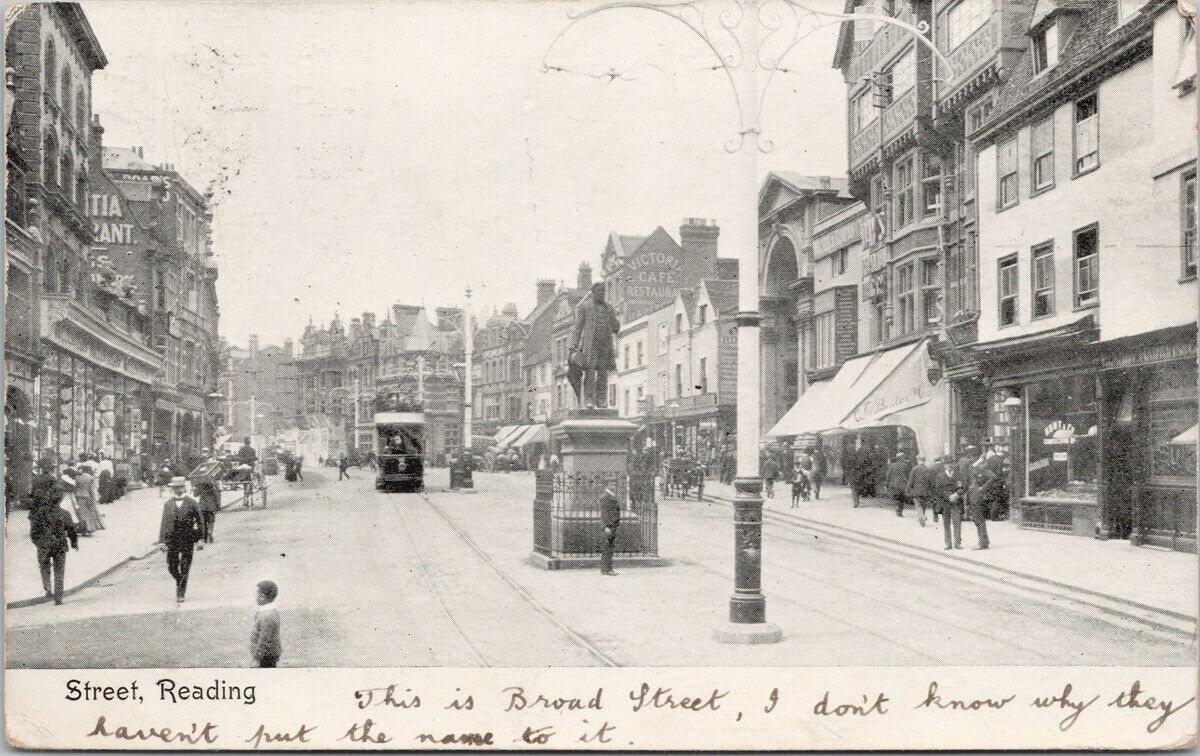 TIA
RANT
VICTORI
CAFE
RESTAURANT
Street, Reading
This is Broad Street, I don't know why they
haven't put the name to it.